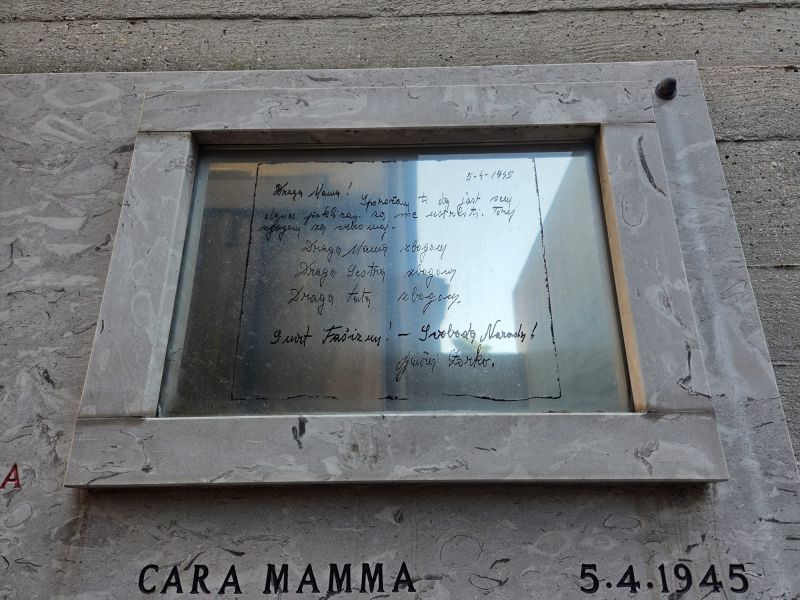 5-4-1945
Draga Mama!
Sporočam ti da jast sem
danes poklican za me ustreliti. Torej
zbogom za vekomaj.
Draga Mama zbogom
Draga Sestra zbogom
Draga tata zbogom.
Smrt Fašizmu! – Svoboda Narodu!
Zorko.
A
CARA MAMMA 5.4.1945